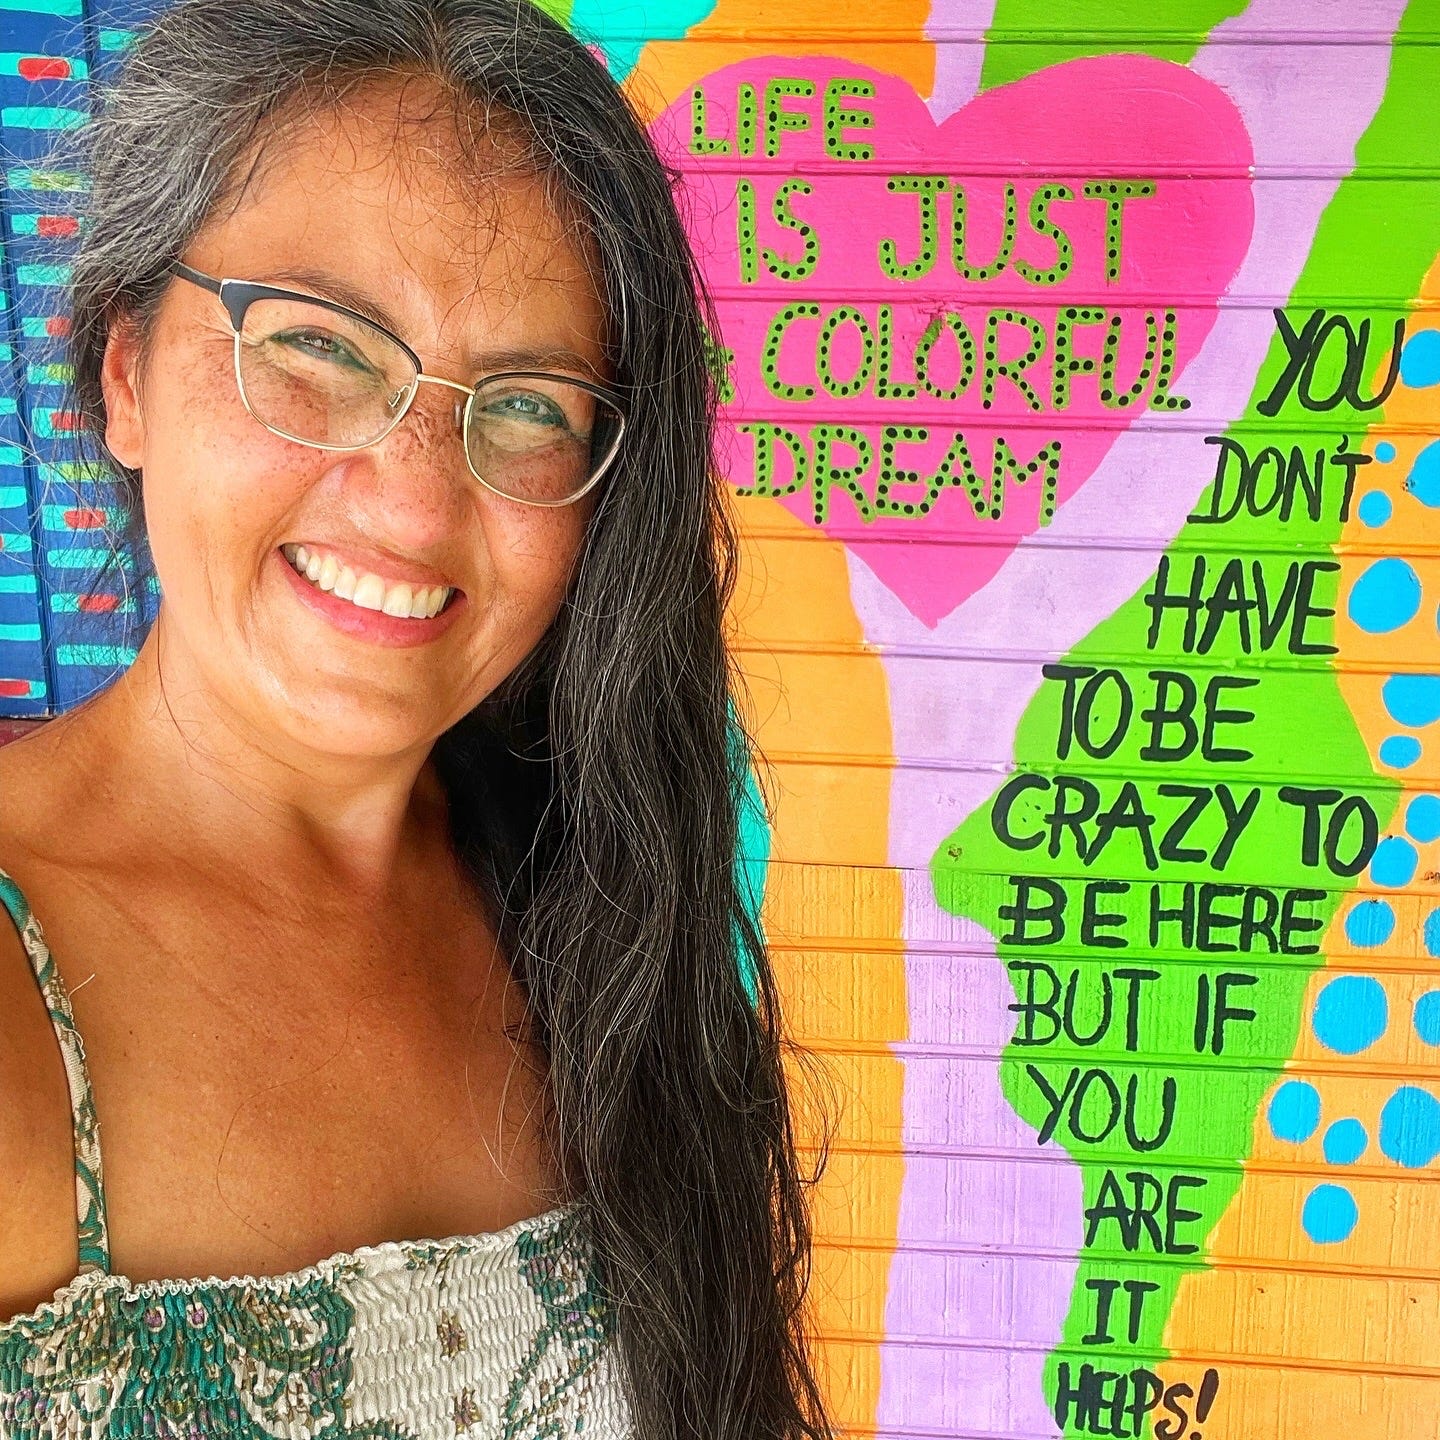 LIFE
IS JUST
A COLORFUL
DREAM
YOU
DON'T
HAVE
TO BE
CRAZY TO
BE HERE
BUT IF
YOU
ARE
IT
HELPS!